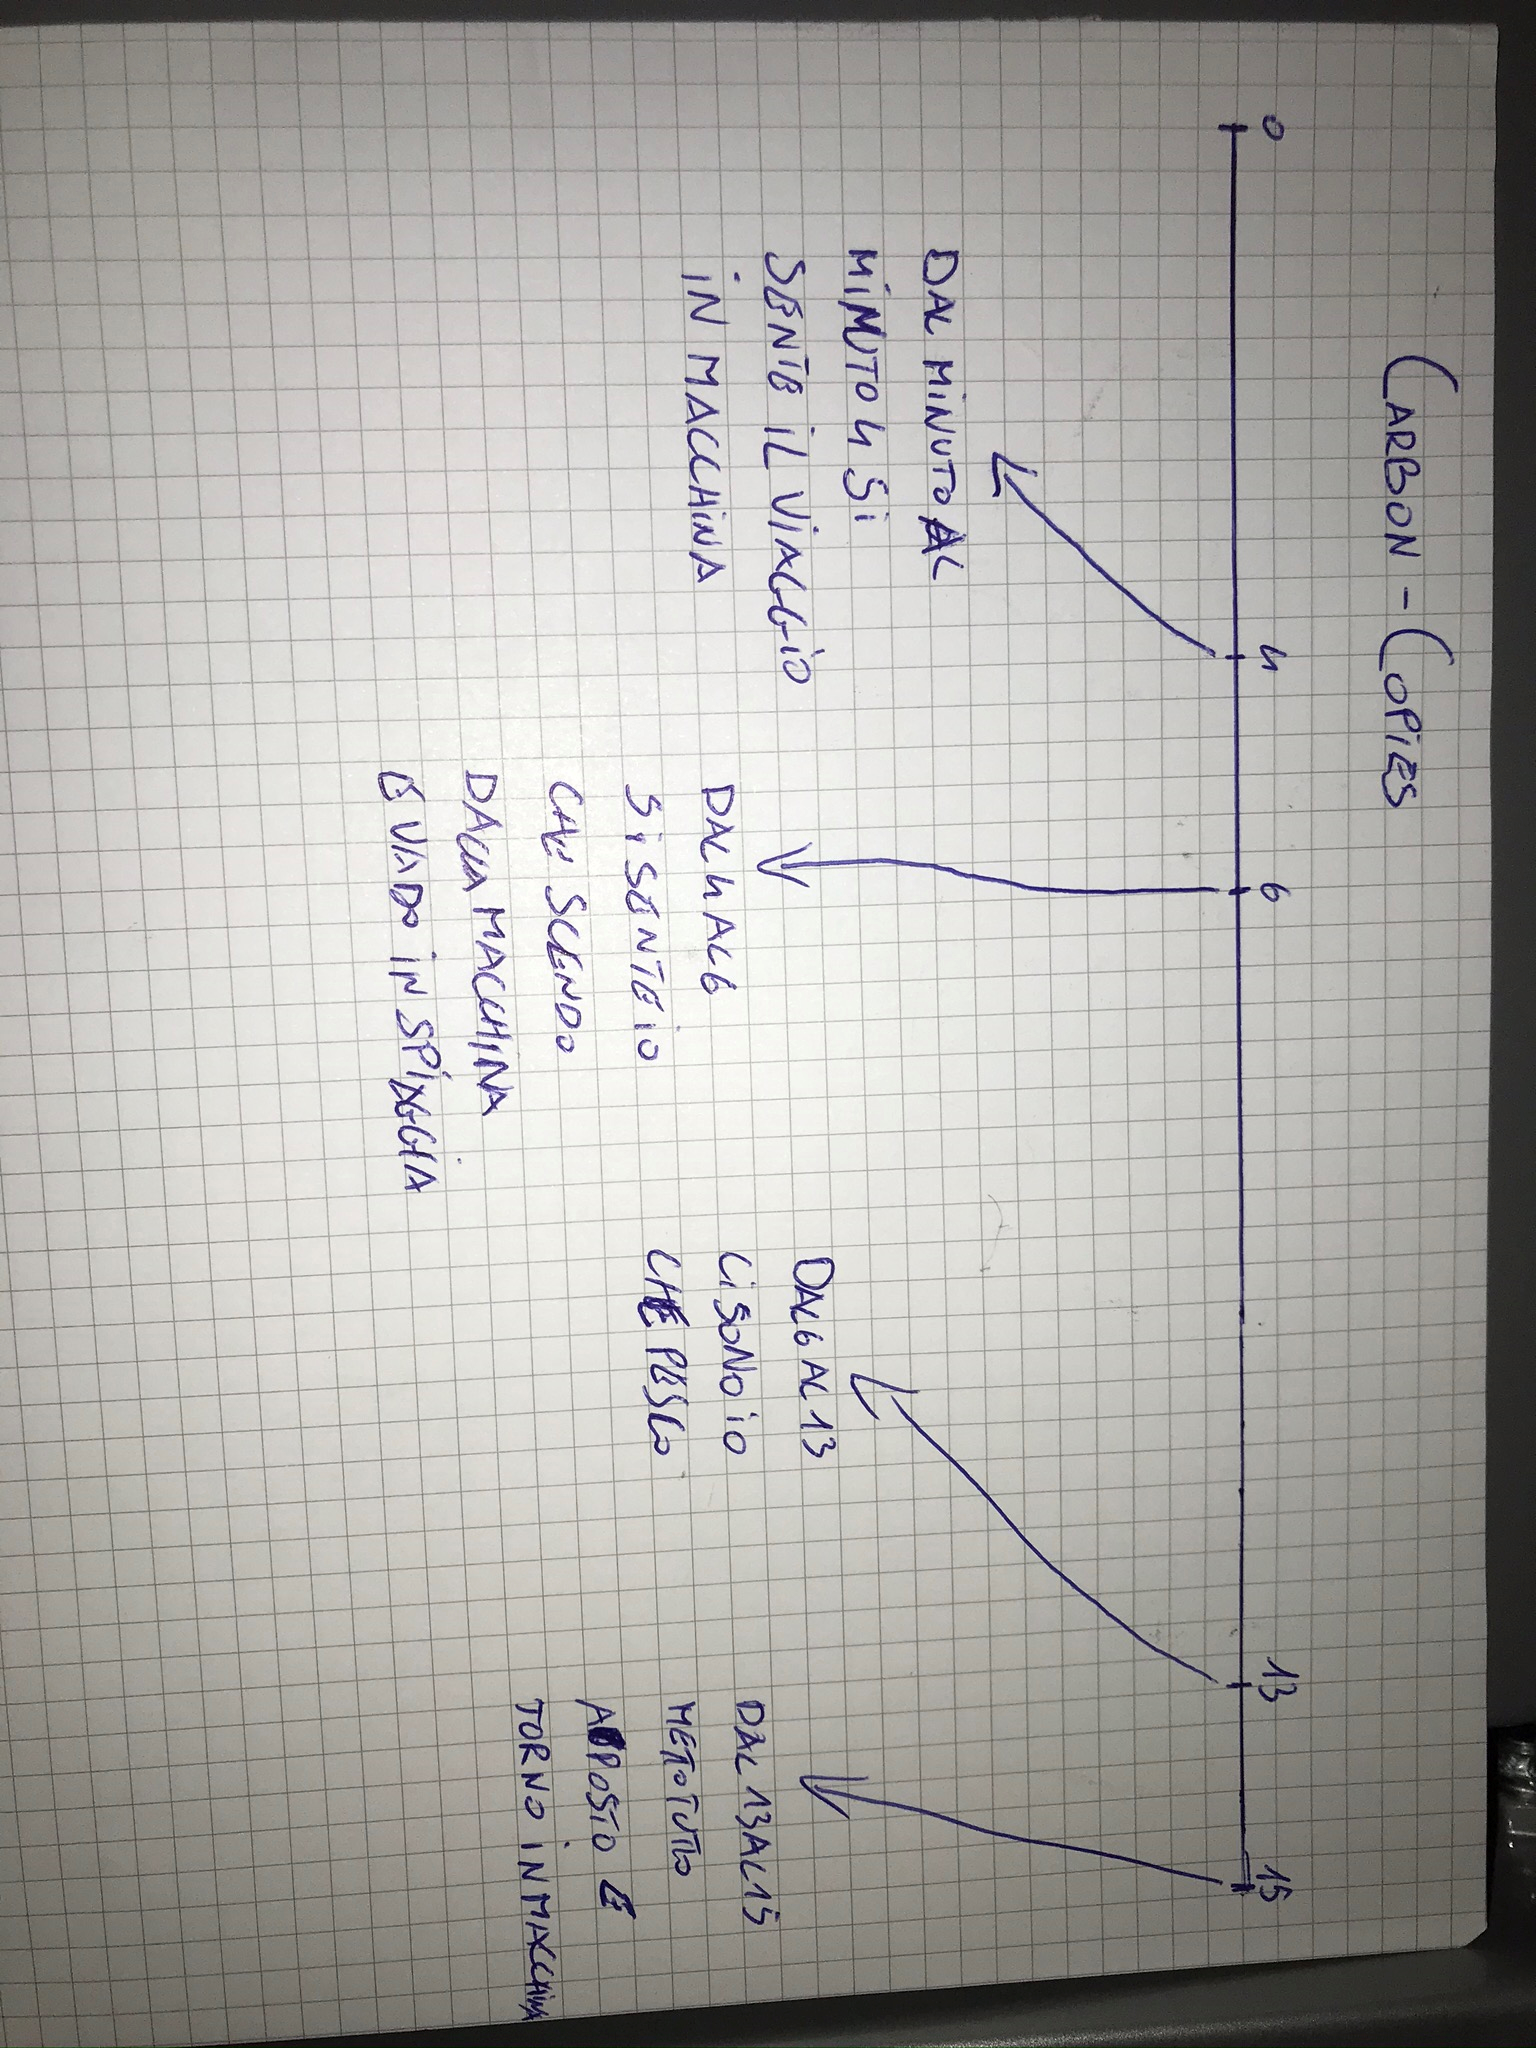 CARBON - COPIES
0 4 6 13 15
DAL MINUTO AL
MINUTO 4 SI
SENTE IL VIAGGIO
IN MACCHINA
DAL 4 AL 6
SI SENTE IO
CHE SCENDO
DALLA MACCHINA
E VADO IN SPIAGGIA
DAL 6 AL 13
CI SONO IO
CHE PESCO
DAL 13 AL 15
METTO TUTTO
APOSTO E
TORNO IN MACCHINA